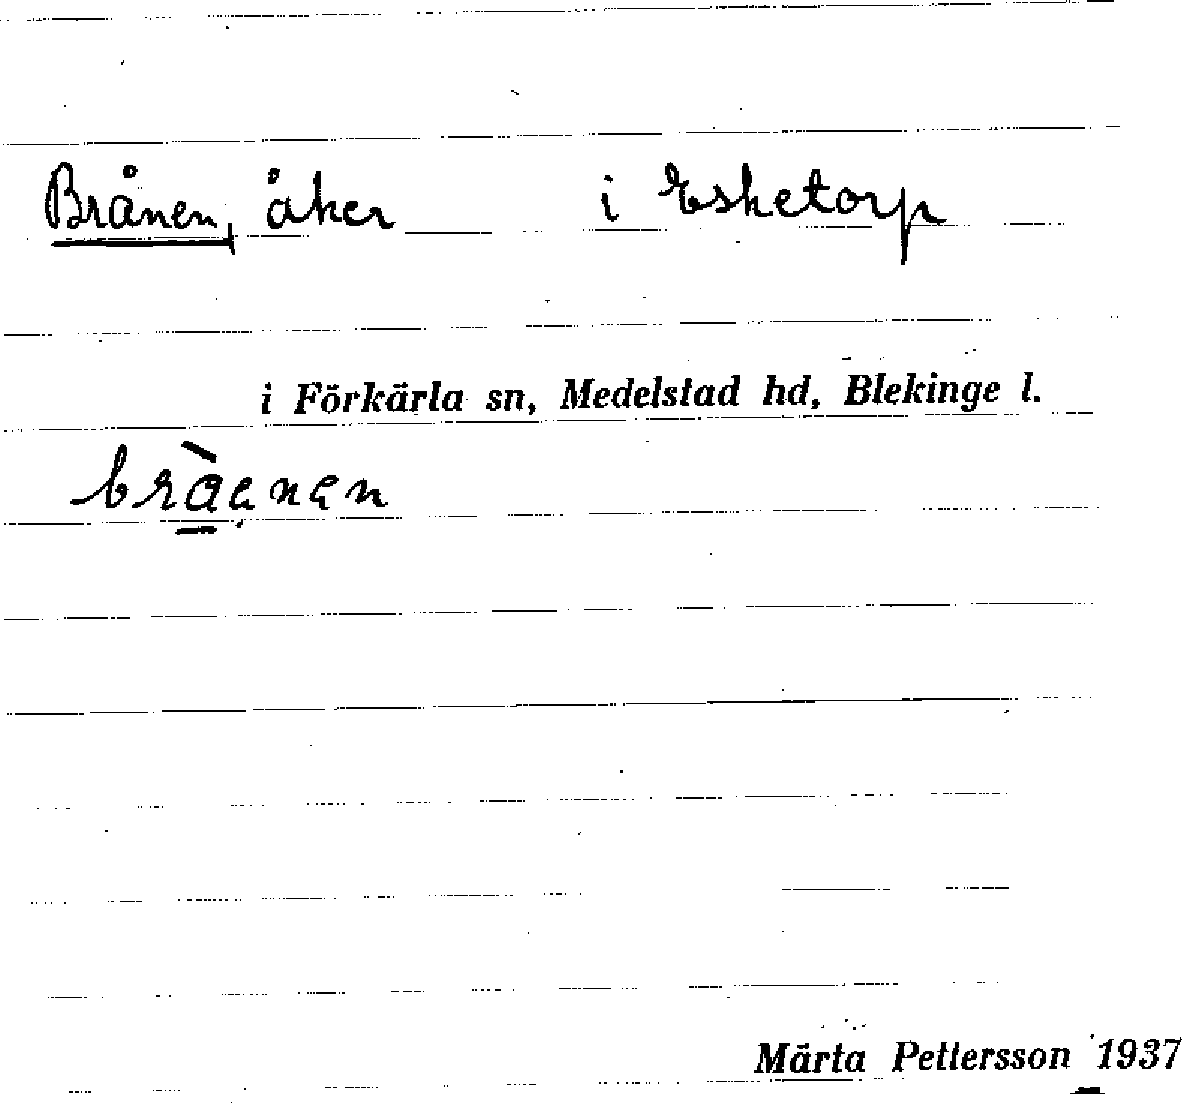 Brånen, åker i Esketorp
i Förkärla sn, Medelstad hd, Blekinge l.
bràenen
Märta Pettersson 1937